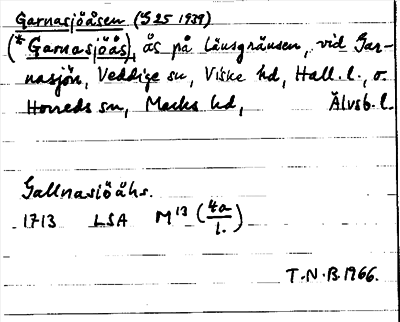 Garnasjöåsen (S 25 1939)
(*Garnasjöås), ås på länsgränsen, vid Gar-
nasjön, Veddige sn, Viske hd, Hall. l., o.
Horreds sn, Marks hd, Älvsb. l.
Gallnasiöåhs.
1713 LSA M¹³ (4a/1.)
T.N.B. 1966.